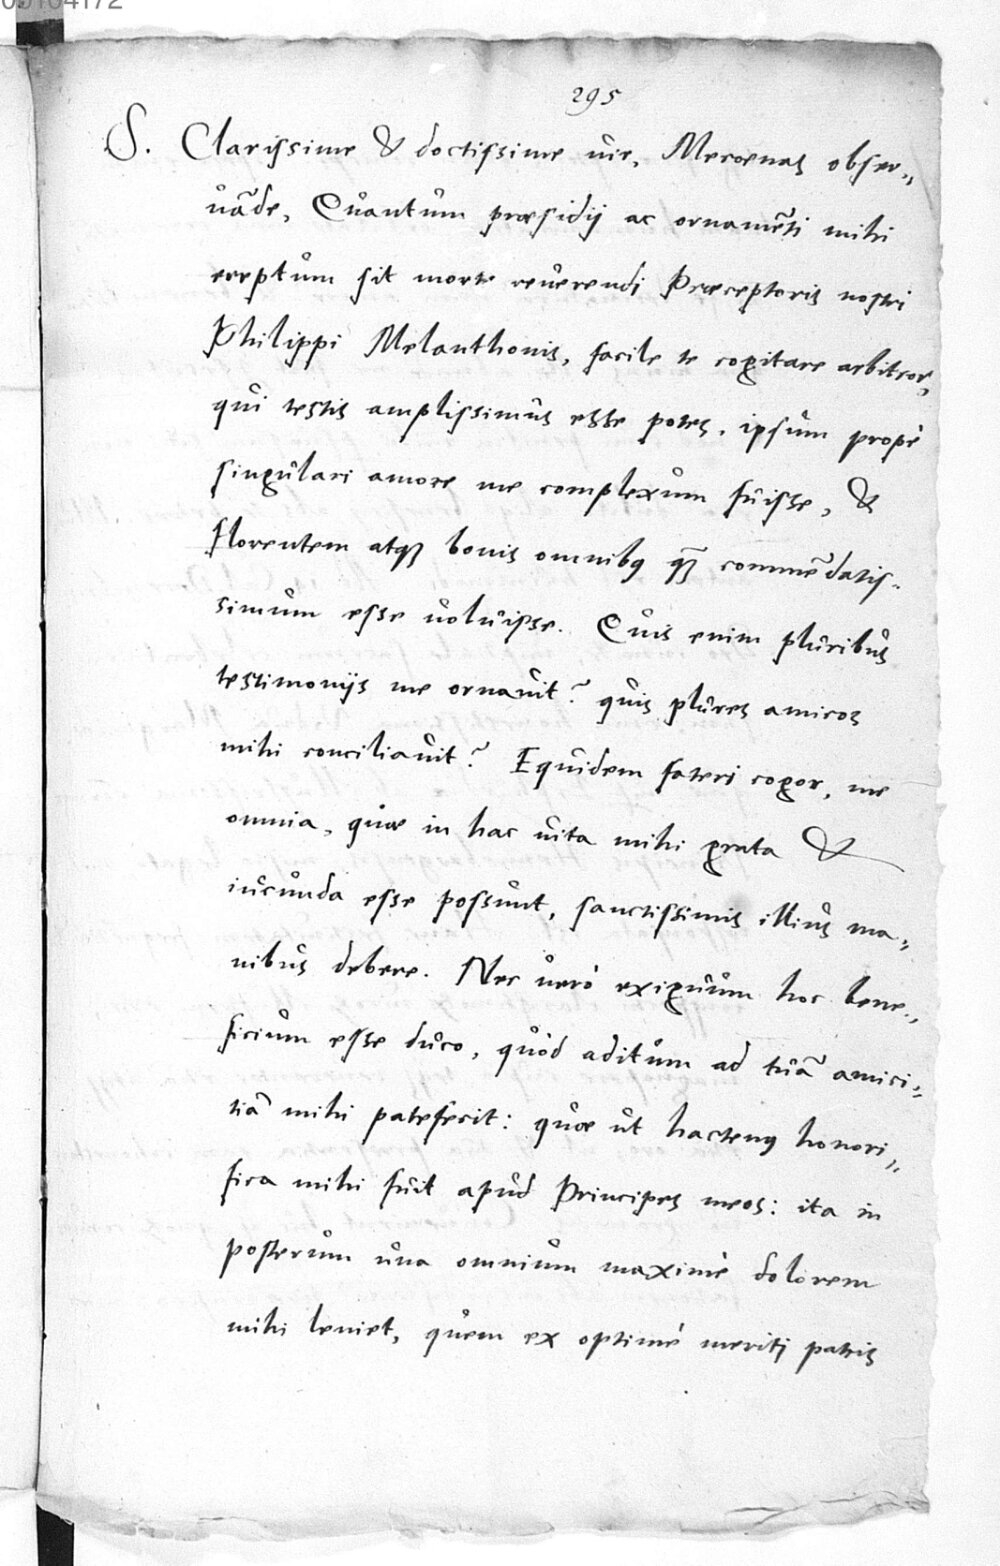 00104172
295
S. Clarissime & doctissime vir, Mecoenas obser„
uãde, Quantùm praesidij ac ornamẽti mihi
ereptùm sit morte reùerendi Praeceptoris nostri
Philippi Melanthonis, facile te cogitare arbitror,
qùi testis amplissimùs esse potes, ipsùm propè
singùlari amore me complexùm fùisse, &
florentem atq₃ bonis omnibꝰ q̃₃ commẽdatis„
simùm esse uolùisse. Qùis enim plùribùs
testimonijs me ornauit? qùis plùres amicos
mihi conciliaùit? Eqùidem fateri cogor, me
omnia, qùae in hac ùita mihi grata &
iùcùnda esse possùnt, sanctissimis illiùs ma„
nibùs debere. Nec ùerò exigùùm hoc bene„
ficiùm esse dùco, qùòd aditùm ad tùã amici„
tiã mihi patefecit: qùae ùt hactenꝰ honori„
fica mihi fùit apùd Principes meos: ita in
posterùm ùna omniùm maximè dolorem
mihi leniet, qùem ex optimè meritj patris